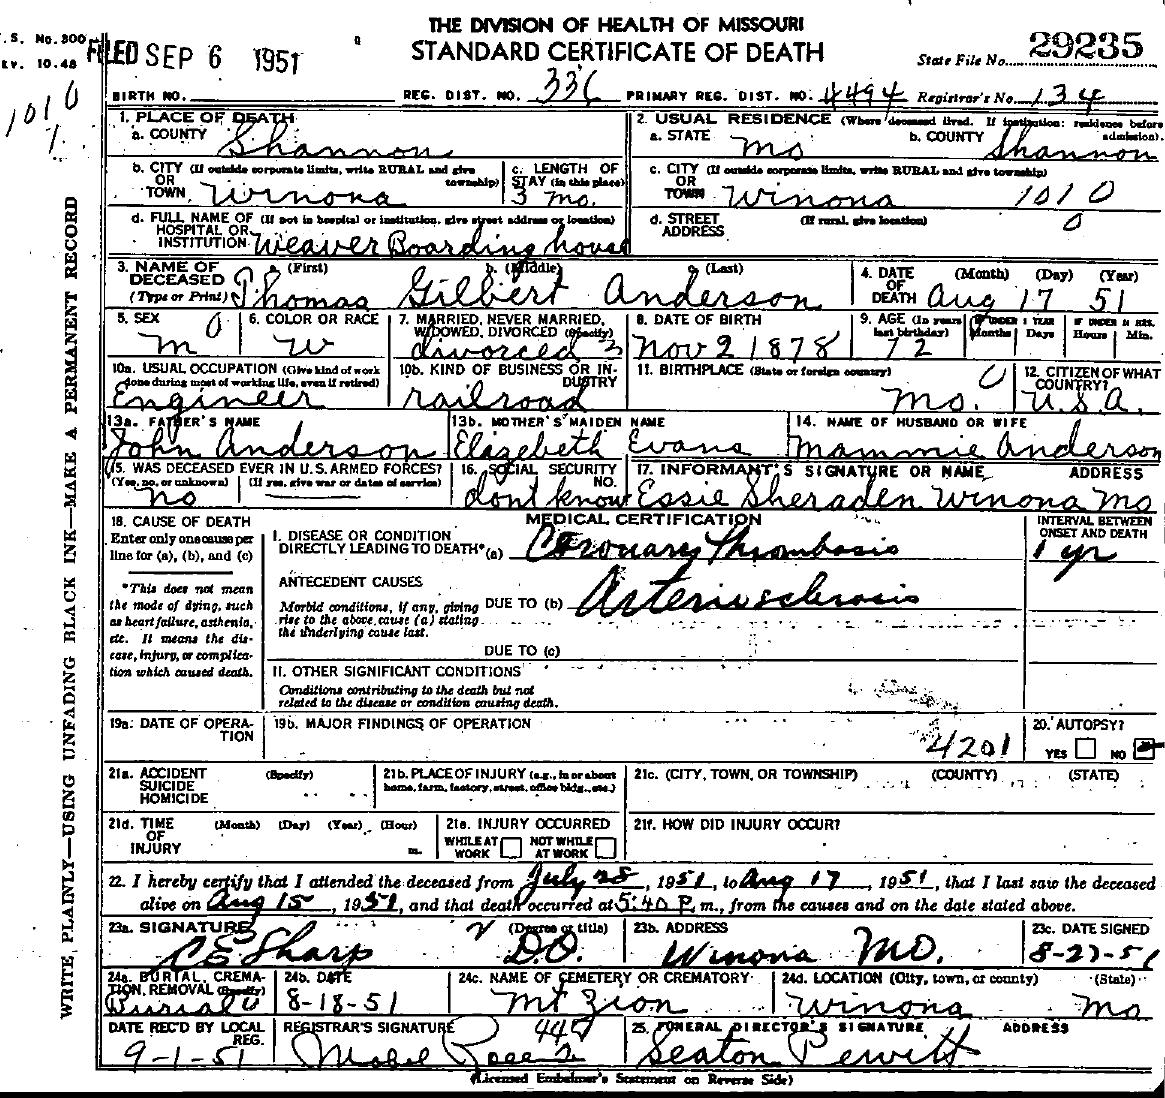 THE DIVISION OF HEALTH OF MISSOURI
STANDARD CERTIFICATE OF DEATH
No. 300
10-48
FILED SEP 6 1951
State File No. 29235
1010
BIRTH NO. REG. DIST. NO. 336 PRIMARY REG. DIST. NO. 4494 Registrar's No. 134
1. PLACE OF DEATH
a. COUNTY Shannon
2. USUAL RESIDENCE (Where deceased lived. If institution: residence before admission).
a. STATE Mo b. COUNTY Shannon
b. CITY (If outside corporate limits, write RURAL and give township)
OR TOWN Winona
c. LENGTH OF STAY (in this place) 3 mo.
c. CITY (If outside corporate limits, write RURAL and give township)
OR TOWN Winona 1010
d. FULL NAME OF (If not in hospital or institution, give street address or location)
HOSPITAL OR INSTITUTION Weaver Boarding house
d. STREET ADDRESS (If rural, give location) 0
3. NAME OF DECEASED (Type or Print)
a. (First) b. (Middle) c. (Last)
Thomas Gilbert Anderson
4. DATE OF DEATH (Month) (Day) (Year)
Aug 17 51
5. SEX 0
m
6. COLOR OR RACE
W
7. MARRIED, NEVER MARRIED, WIDOWED, DIVORCED (Specify)
divorced 3
8. DATE OF BIRTH
Nov 2 1878
9. AGE (In years last birthday) 72
IF UNDER 1 YEAR Months Days
IF UNDER 24 HRS. Hours Min.
10a. USUAL OCCUPATION (Give kind of work done during most of working life, even if retired)
Engineer
10b. KIND OF BUSINESS OR INDUSTRY
railroad
11. BIRTHPLACE (State or foreign country)
Mo. 0
12. CITIZEN OF WHAT COUNTRY?
U.S.A.
13a. FATHER'S NAME
John Anderson
13b. MOTHER'S MAIDEN NAME
Elizebeth Evans
14. NAME OF HUSBAND OR WIFE
Mammie Anderson
15. WAS DECEASED EVER IN U.S. ARMED FORCES?
(Yes, no, or unknown) (If yes, give war or dates of service)
no
16. SOCIAL SECURITY NO.
dont know
17. INFORMANT'S SIGNATURE OR NAME ADDRESS
Essie Sheraden Winona Mo
18. CAUSE OF DEATH
Enter only one cause per line for (a), (b), and (c)
*This does not mean the mode of dying, such as heart failure, asthenia, etc. It means the disease, injury, or complication which caused death.
MEDICAL CERTIFICATION
INTERVAL BETWEEN ONSET AND DEATH
I. DISEASE OR CONDITION
DIRECTLY LEADING TO DEATH* (a) Coronary Thrombosis 1 yr
ANTECEDENT CAUSES
Morbid conditions, if any, giving rise to the above cause (a) stating the underlying cause last.
DUE TO (b) Arteriosclerosis
DUE TO (c)
II. OTHER SIGNIFICANT CONDITIONS
Conditions contributing to the death but not related to the disease or condition causing death.
19a. DATE OF OPERATION
19b. MAJOR FINDINGS OF OPERATION
4201
20. AUTOPSY?
YES NO
21a. ACCIDENT SUICIDE HOMICIDE (Specify)
21b. PLACE OF INJURY (e.g., in or about home, farm, factory, street, office bldg., etc.)
21c. (CITY, TOWN, OR TOWNSHIP) (COUNTY) (STATE)
21d. TIME OF INJURY (Month) (Day) (Year) (Hour) m.
21e. INJURY OCCURRED
WHILE AT WORK NOT WHILE AT WORK
21f. HOW DID INJURY OCCUR?
22. I hereby certify that I attended the deceased from July 28, 1951, to Aug 17, 1951, that I last saw the deceased
alive on Aug 15, 1951, and that death occurred at 5:40 P.m., from the causes and on the date stated above.
23a. SIGNATURE (Degree or title)
C E Sharp D.O.
23b. ADDRESS
Winona Mo.
23c. DATE SIGNED
8-27-51
24a. BURIAL, CREMATION, REMOVAL (Specify)
Burial
24b. DATE
8-18-51
24c. NAME OF CEMETERY OR CREMATORY
Mt Zion
24d. LOCATION (City, town, or county) (State)
Winona Mo
DATE REC'D BY LOCAL REG.
9-1-51
REGISTRAR'S SIGNATURE
Mabel
25. FUNERAL DIRECTOR'S SIGNATURE ADDRESS
Seaton Pewitt
(Licensed Embalmer's Statement on Reverse Side)
WRITE PLAINLY—USING UNFADING BLACK INK—MAKE A PERMANENT RECORD